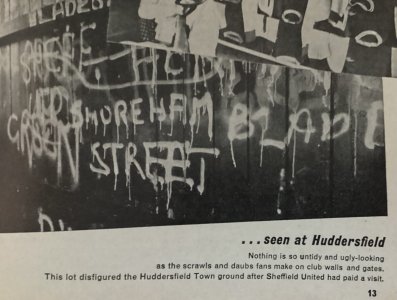 BLADES
SHOREHAM
BLADE
GREEN
STREET
...seen at Huddersfield
Nothing is so untidy and ugly-looking
as the scrawls and daubs fans make on club walls and gates.
This lot disfigured the Huddersfield Town ground after Sheffield United had paid a visit.
13